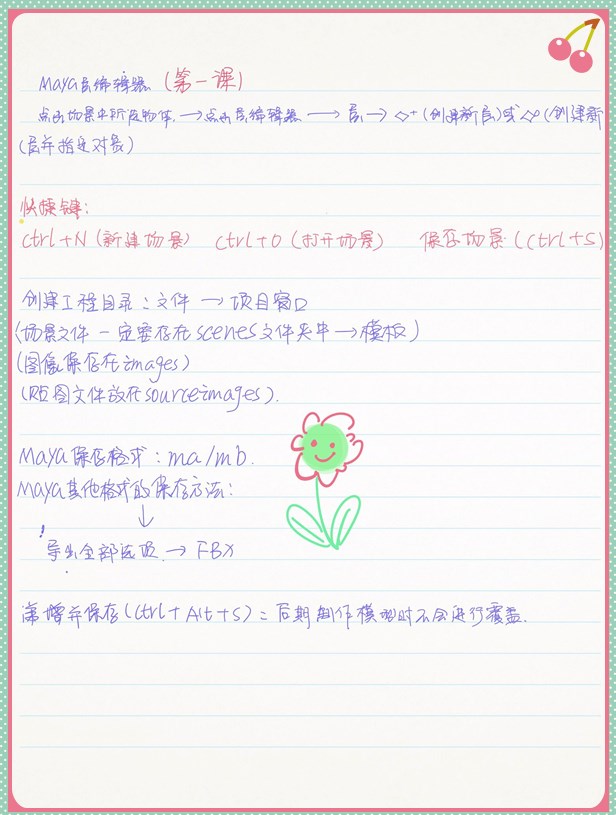 Maya层编辑器（第一课）
点击场景中所有物体 → 点击层编辑器 → 层 → ◇+（创建新层）或◇°（创建新
（层并指定对象）
快捷键：
ctrl+N（新建场景） ctrl+O（打开场景） 保存场景（ctrl+S）
创建工程目录：文件 → 项目窗口
（场景文件一定要存在scenes文件夹中→模板）
（图像保存在images）
（贴图文件放在sourceimages）.
Maya保存格式：ma/mb.
Maya其他格式的保存方法：
↓
! 导出全部选项. → FBX
递增并保存（ctrl+Alt+S）= 后期制作模型时不会进行覆盖.